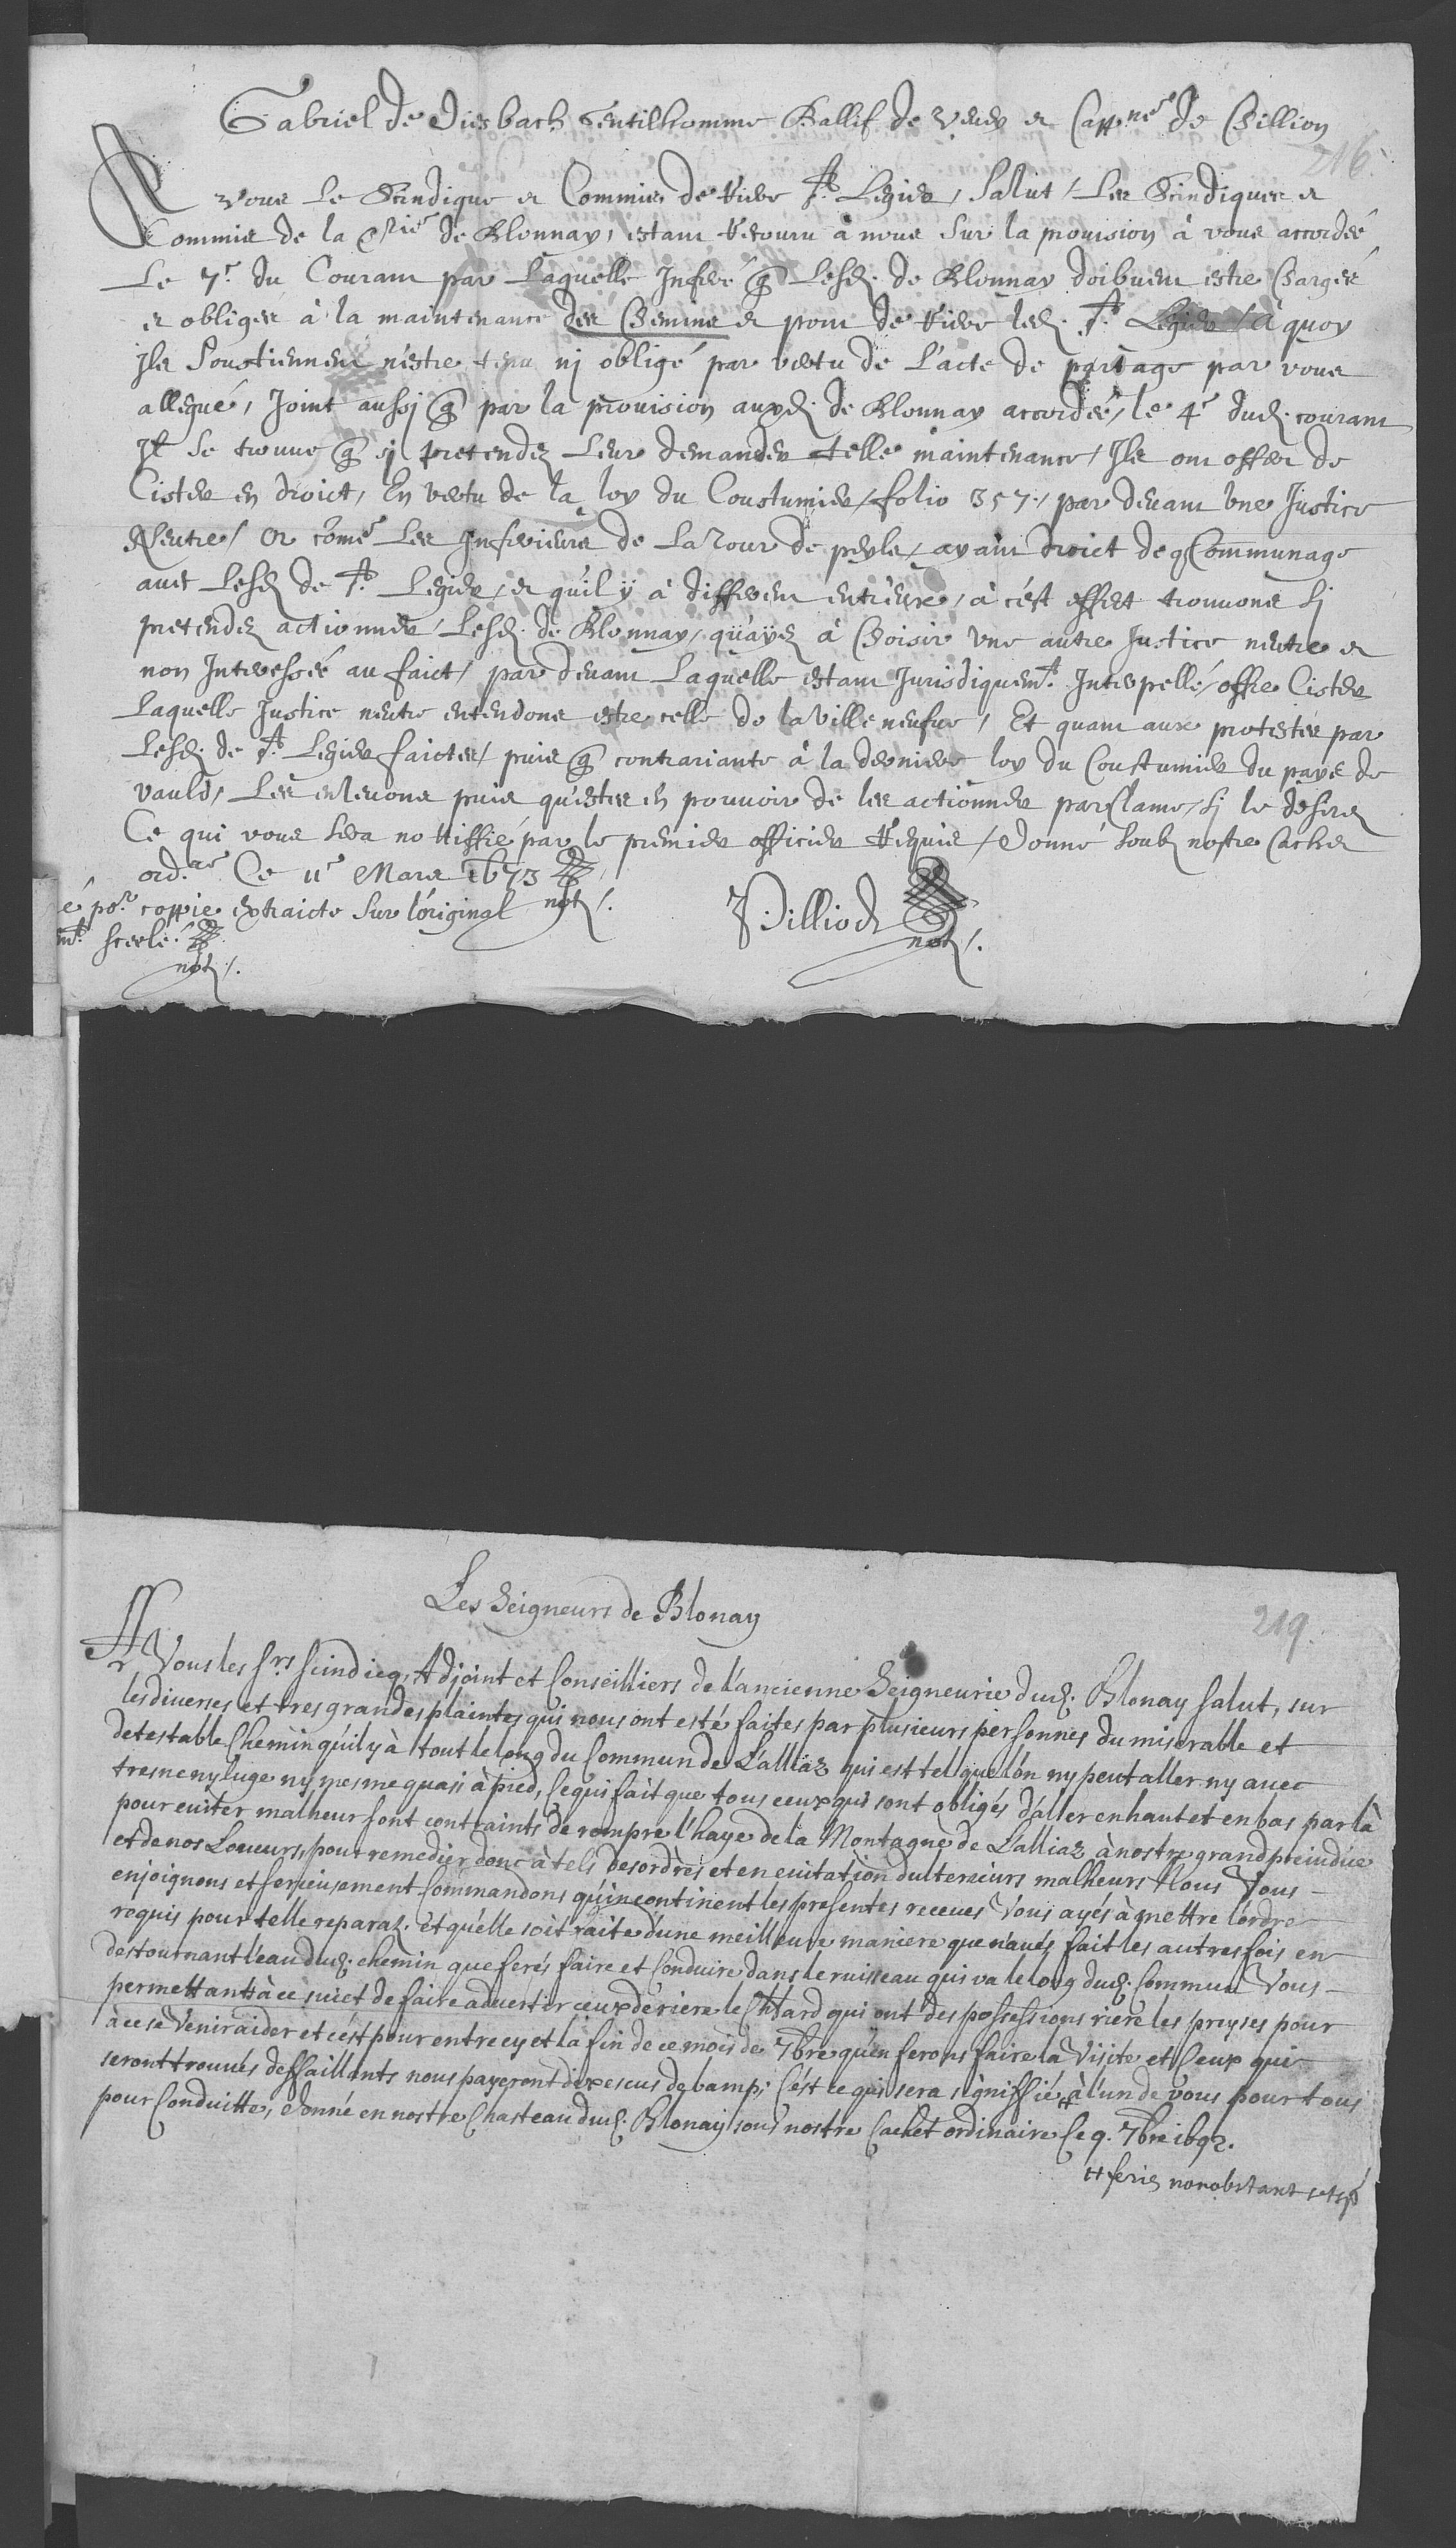 Gabriel de Diesbach Gentilhomme Ballif de Vevey et Capp.ne de Chillion
216.
A vous Le Scindique et Commis de Riere St. Legier, Salut / Les Scindiques et
Commis de la Srie de Blonnay, estant Recouru à nous Sur la provision à vous accordée
Le 7e du Courant par Laquelle Inseré q Lesd. de Blonnay doibvent estre Chargés
et obliges à la maintenance des Chemins et pont de Riere led. St. Legier / à quoy
Ils Soustiennent n'estre tenu nj obligé par vertu de L'acte de partage par vous
allegué, Joint aussj q par la provision auxd. de Blonnay accordée, le 4e dud. courant
Il se trouve q sj pretendez Leur demander telle maintenance / Ils ont offer de
Cister en droict, En vertu de la loy du Coustumier / folio 357., par devant Une Justice
Neutre / Or come Les Inferieurs de La Tour de peylz / ayant Droict de Communage
avec Lesd. de St. Legier, et qu'il ÿ à different entr'eux, à c'est effect trouvons Sj
pretendez actionner Lesd. de Blonnay, qu'ayez à Choisir une autre Justice neutre et
non Interessée au faict, par devant Laquelle estant Jurisdiquemt. Interpellé / offre Cister
Laquelle Justice neutre entendons estre celle de la Ville neufve, Et quant aux protestes par
Lesd. de St. Legier faictes / puis q contrariante à la derniere loy du Coustumier du pays de
vauld, Les enlevons puis qu'estes en pouvoir de les actionner par Clame, Sj le desirez
Ce qui vous Sera nottiffié par le premier officier Requis / Donné Soubz nostre Cachet
ord.re Ce 11e Mars 1673
é po.r coppie extraicte Sur l'original not /.
mt. scerlé.
not /.
Pilliod
not /.
Les Seigneurs de Blonay
219.
A Vous les Srs Scindicq, Adjoint et Conseilliers de l'ancienne Seigneurie dud. Blonay salut, sur
les diverses et tres grandes plaintes qui nous ont esté faites par plusieurs personnes du miserable et
detestable Chemin qu'il y à tout le long du Commun de L'alliaz qui est tel que l'on ny peut aller ny avec
tresne ny luge ny mesme quasi à pied, Ce qui fait que tous ceux qui sont obligés d'aller en haut et en bas par là
pour eviter malheur sont contraints de rompre l'haye de la Montagne de L'alliaz à nostre grand prejudice
et de nos Loueurs, pour remedier donc à tels desordres et en evitation d'ulterieurs malheurs Nous Vous
enjoignons et serieusement Commandons qu'incontinent les presentes receues Vous ayés à mettre l'ordre
requis pour telle reparaz. et qu'elle soit faite d'une meilleure maniere que n'avés fait les autres fois en
destournant l'eau dud. chemin que ferés faire et Conduire dans le ruisseau qui va le long dud. Commun Vous
permettant à ce sujet de faire advertir ceux deriere le Chatlard qui ont des possessions riere les preyses pour
à ce se Venir aider et c'est pour entre cy et la fin de ce mois de 7bre qu'en ferons faire la Visite et Ceux qui
seront trouvés deffaillants nous payeront dix escus de bamp. C'est ce qui sera signiffié # à l'un de vous pour tous
pour Conduitte, Donné en nostre Chasteau dud. Blonay sous nostre Cachet ordinaire Ce 9. 7bre 1692.
# feries nonobstant